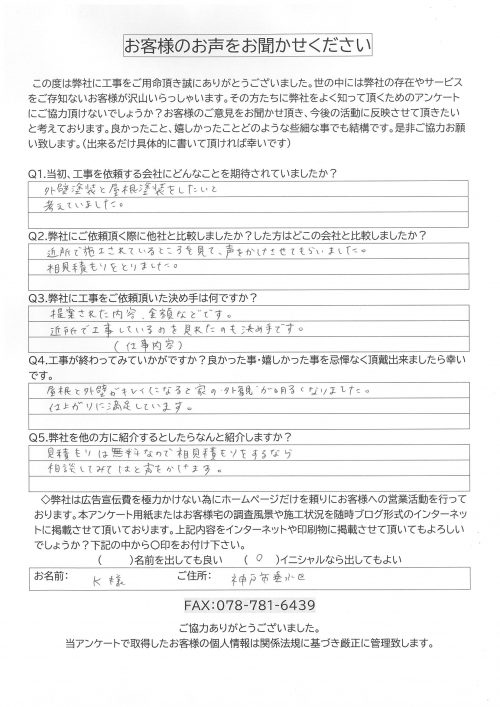 お客様のお声をお聞かせください
この度は弊社に工事をご用命頂き誠にありがとうございました。世の中には弊社の存在やサービス
をご存知ないお客様が沢山いらっしゃいます。その方たちに弊社をよく知って頂くためのアンケート
にご協力頂けないでしょうか?お客様のご意見をお聞かせ頂き、今後の活動に反映させて頂きたい
と考えております。良かったこと、嬉しかったことどのような些細な事でも結構です。是非ご協力お願
い致します。(出来るだけ具体的に書いて頂ければ幸いです)
Q1.当初、工事を依頼する会社にどんなことを期待されていましたか?
外壁塗装と屋根塗装をしたいと
考えていました。
Q2.弊社にご依頼頂く際に他社と比較しましたか?した方はどこの会社と比較しましたか?
近所で施工されているところを見て、声をかけさせてもらいました。
相見積もりをとりました。
Q3.弊社に工事をご依頼頂いた決め手は何ですか?
提案された内容、金額などです。
近所で工事しているのを見れたのも決め手です。
(仕事内容)
Q4.工事が終わってみていかがですか?良かった事・嬉しかった事を忌憚なく頂戴出来ましたら幸い
です。
屋根と外壁がキレイになると家の外観が明るくなりました。
仕上がりに満足しています。
Q5.弊社を他の方に紹介するとしたらなんと紹介しますか?
見積もりは無料なので相見積もりをするなら
相談してみてはと声をかけます。
◇弊社は広告宣伝費を極力かけない為にホームページだけを頼りにお客様への営業活動を行って
おります。本アンケート用紙またはお客様宅の調査風景や施工状況を随時ブログ形式のインターネッ
トに掲載させて頂いております。上記内容をインターネットや印刷物に掲載させて頂いてもよろしい
でしょうか?下記の中から〇印をお付け下さい。
( )名前を出しても良い (○)イニシャルなら出してもよい
お名前: K様 ご住所: 神戸市垂水区
FAX:078-781-6439
ご協力ありがとうございました。
当アンケートで取得したお客様の個人情報は関係法規に基づき厳正に管理致します。